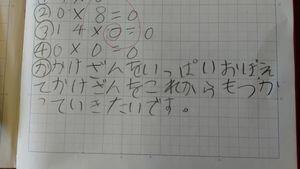 ②0×8=0
③14×0=0
④0×0=0
㋕かけざんをいっぱいおぼえ
てかけざんをこれからもつか
っていきたいです。